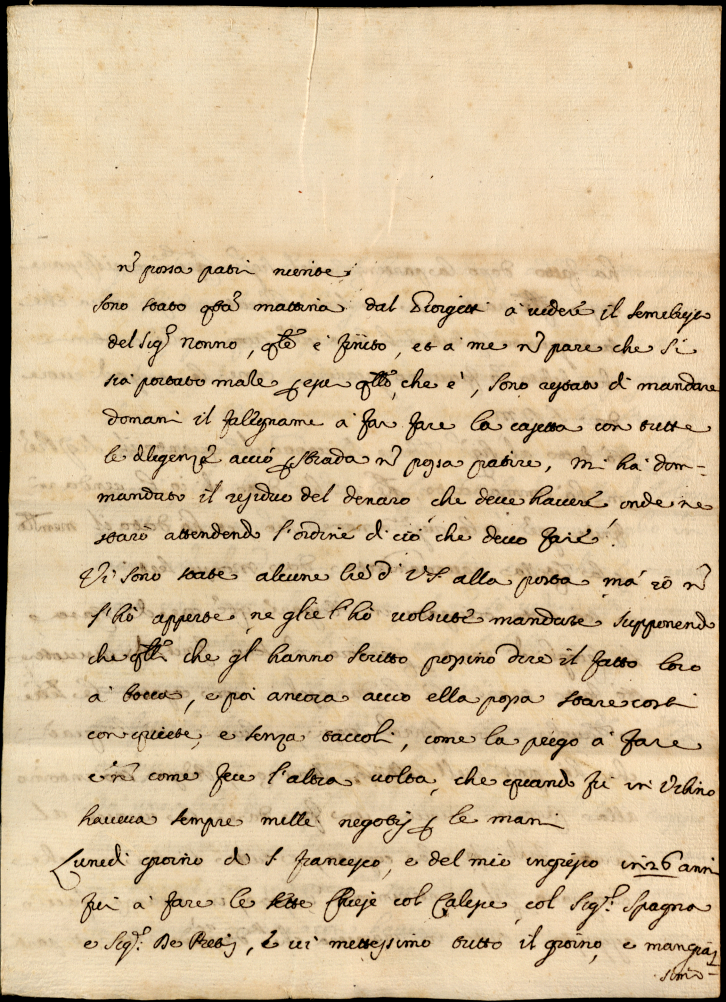 nō possa patir niente.
sono stato qstā mattina dal Giorgetti à vedere il semebusto
del Sigr Nonno, qlē è finito, et à me nō pare che si
sia portato male esse qllō, che è, sono restato di mandare
domani il fallegname à far fare la casetta con tutte
le diligenze acciò strada nō possa patire, mi hà dom=
mandato il residuo del denaro che deve havere onde ne
starò attendendo l'ordine di ciò che devo fare.
Vi sono state alcune lre di V.S. alla posta, mà io nō
l'hò apperte, ne glie l'hò volsute mandare supponendo
che qlli che gl' hanno scritto possino dire il fatto loro
à bocca, e poi ancora acciò ella possa stare costì
con quiete, e senza taccoli, come la prego à fare
e nō come fece l'altra volta, che quando fù in Urbino
haveva sempre mille negotij le mani
Lunedì giorno di S. Francesco, e del mio ingresso in 26 anni
fui à fare le sette Chiese col Calesse, col Sigr. Spagna
e Sigr. De Pretis, e vi mettessimo tutto il giorno, e mangias
simo=